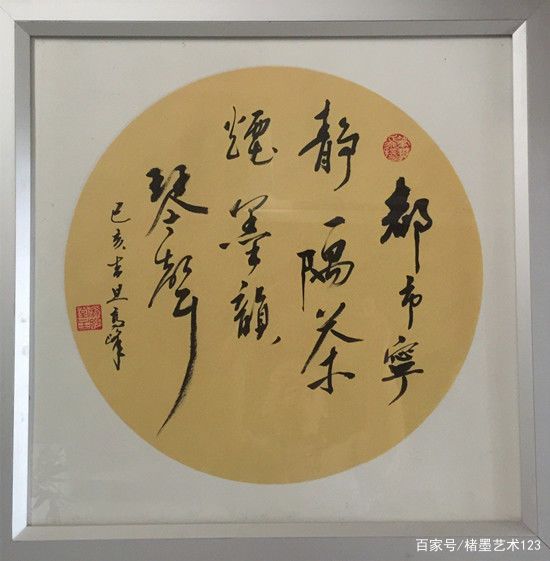 都市寧
静一隅茶
煙墨韻
琴聲
己亥吉旦高峰
百家号/楮墨艺术123